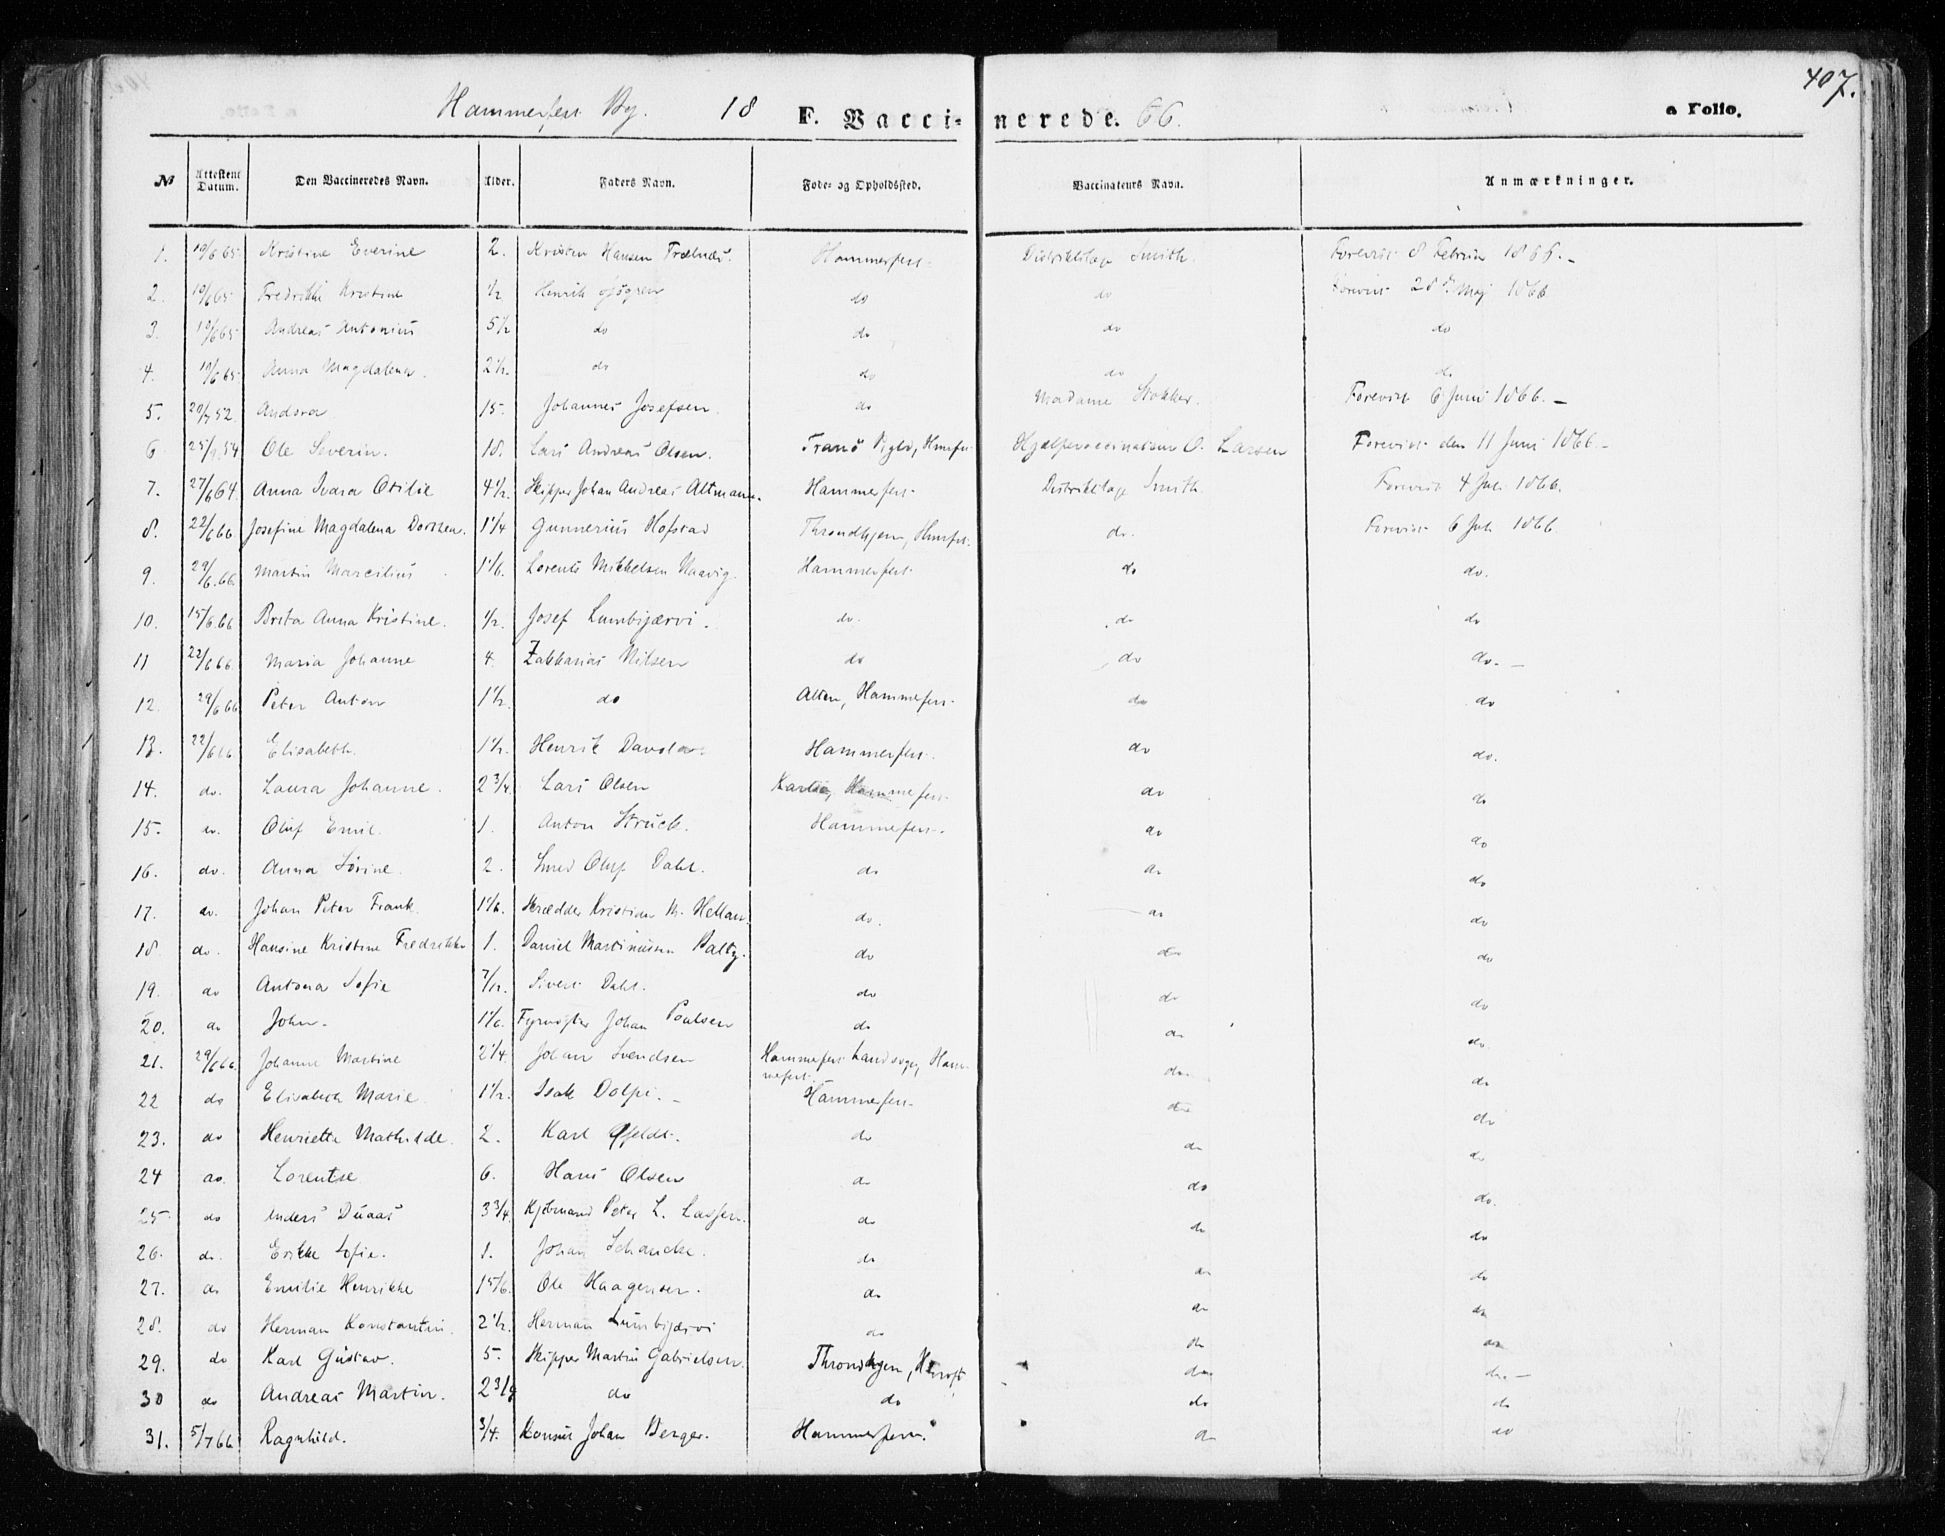 407.
Hammerfest By. 18 F. Vaccinerede. 66. a Folio.
№ Attestens Datum. Den Vaccineredes Navn. Alder. Faders Navn. Føde- og Opholdssted. Vaccinateurs Navn. Anmærkninger.
1. 19/6 65 Kristine Everine 2. Kristen Hansen Hammerfest. Distriktslæge Smith. Forevist 8 Februar 1866.
2. 19/6 65 Fredrikke Kristine 1/2 Henrik do do Forevist 28de Maj 1866
3. 19/6 65 Andreas Antonius 5 1/2 do do do do
4. 19/6 65 Anna Magdalena. 2 1/2. do do do do
5. 52 Andora 15. Johannes Josefsen. do Madame Stokker. Forevist 6 Juni 1866.
6 54 Ole Severin. 18. Lars Andreas Olsen. Tranø Hjælpevaccinateur O. Larsen Forevist den 11 Juni 1866
7. 27/6 64. Anna Otilie 4 1/2. Skipper Johan Andreas Altmann. Hammerfest. Distriktslæge Smith. Forevist 4 Juli 1866.
8. 22/6 66 Josefine Magdalena 1 1/4 Gunnerius Hofstad Throndhjem, Hmrfst. do. Forevist 6 Juli 1866
9. 29/6 66 Martin Marcilius 1 1/6. Lorents Mikkelsen Hammerfest. do do.
10. 15/6 66 Brita Anna Kristine. 1/2. Josef Lumbijærvi. do. do do
11 22/6 66 Maria Johanne 4. Zakkarias Nilsen do do do.
12. 29/6 66 Peter Anton 1 1/2. do Alten, Hammerfest. do do
13. 22/6 66 Elisabeth. 1 1/2. Henrik Hammerfest. do do.
14. do. Laura Johanne. 2 3/4. Lars Olsen Hammerfest. do do
15. do. Oluf Emil. 1. Anton Struck. Hammerfest. do do
16. do. Anna Sørine. 2. Smed Oluf Dahl. do do do
17. do. Johan Peter Frank. 1 1/6. Skrædder Kristian M. Hellan. do. do do
18. do. Hansine Kristine Fredrikke 1. Daniel Martinusen do do do
19. do Antona Sofie 7/12. Sivert Dahl. do do do
20. do John. 1 1/6. Johan Paulsen do do do.
21. 29/6 66 Johanne Martine 2 1/4. Johan Svendsen Hammerfest Landsogn, Ham-
merfest. do. do
22 do Elisabeth Marie 1 1/2. Isak Dolpi. Hammerfest. do do
23. do Henriette Mathilde. 2. Karl do do do
24 do. Lorentse 6. Hans Olsen do do do.
25 do Anders Duaas 3 3/4. Kjøbmand Peter L. Lassen. do do do
26. do. Erikke Sofie. 1. Johan Schancke. do do do
27. do Emilie Henrikke 1 5/6. Ole Haagensen. do do do
28. do Herman Konstantin. 2 1/2. Herman Lumbijærvi do do do
29. do Karl Gustav. 5. Skipper Martin Gabrielsen. Throndhjem, Hmrfst do do.
30 do Andreas Martin. 2 3/4 do do do do
31. 5/7 66 Ragnhild. 3/4. Konsul Johan Berger. Hammerfest. do do